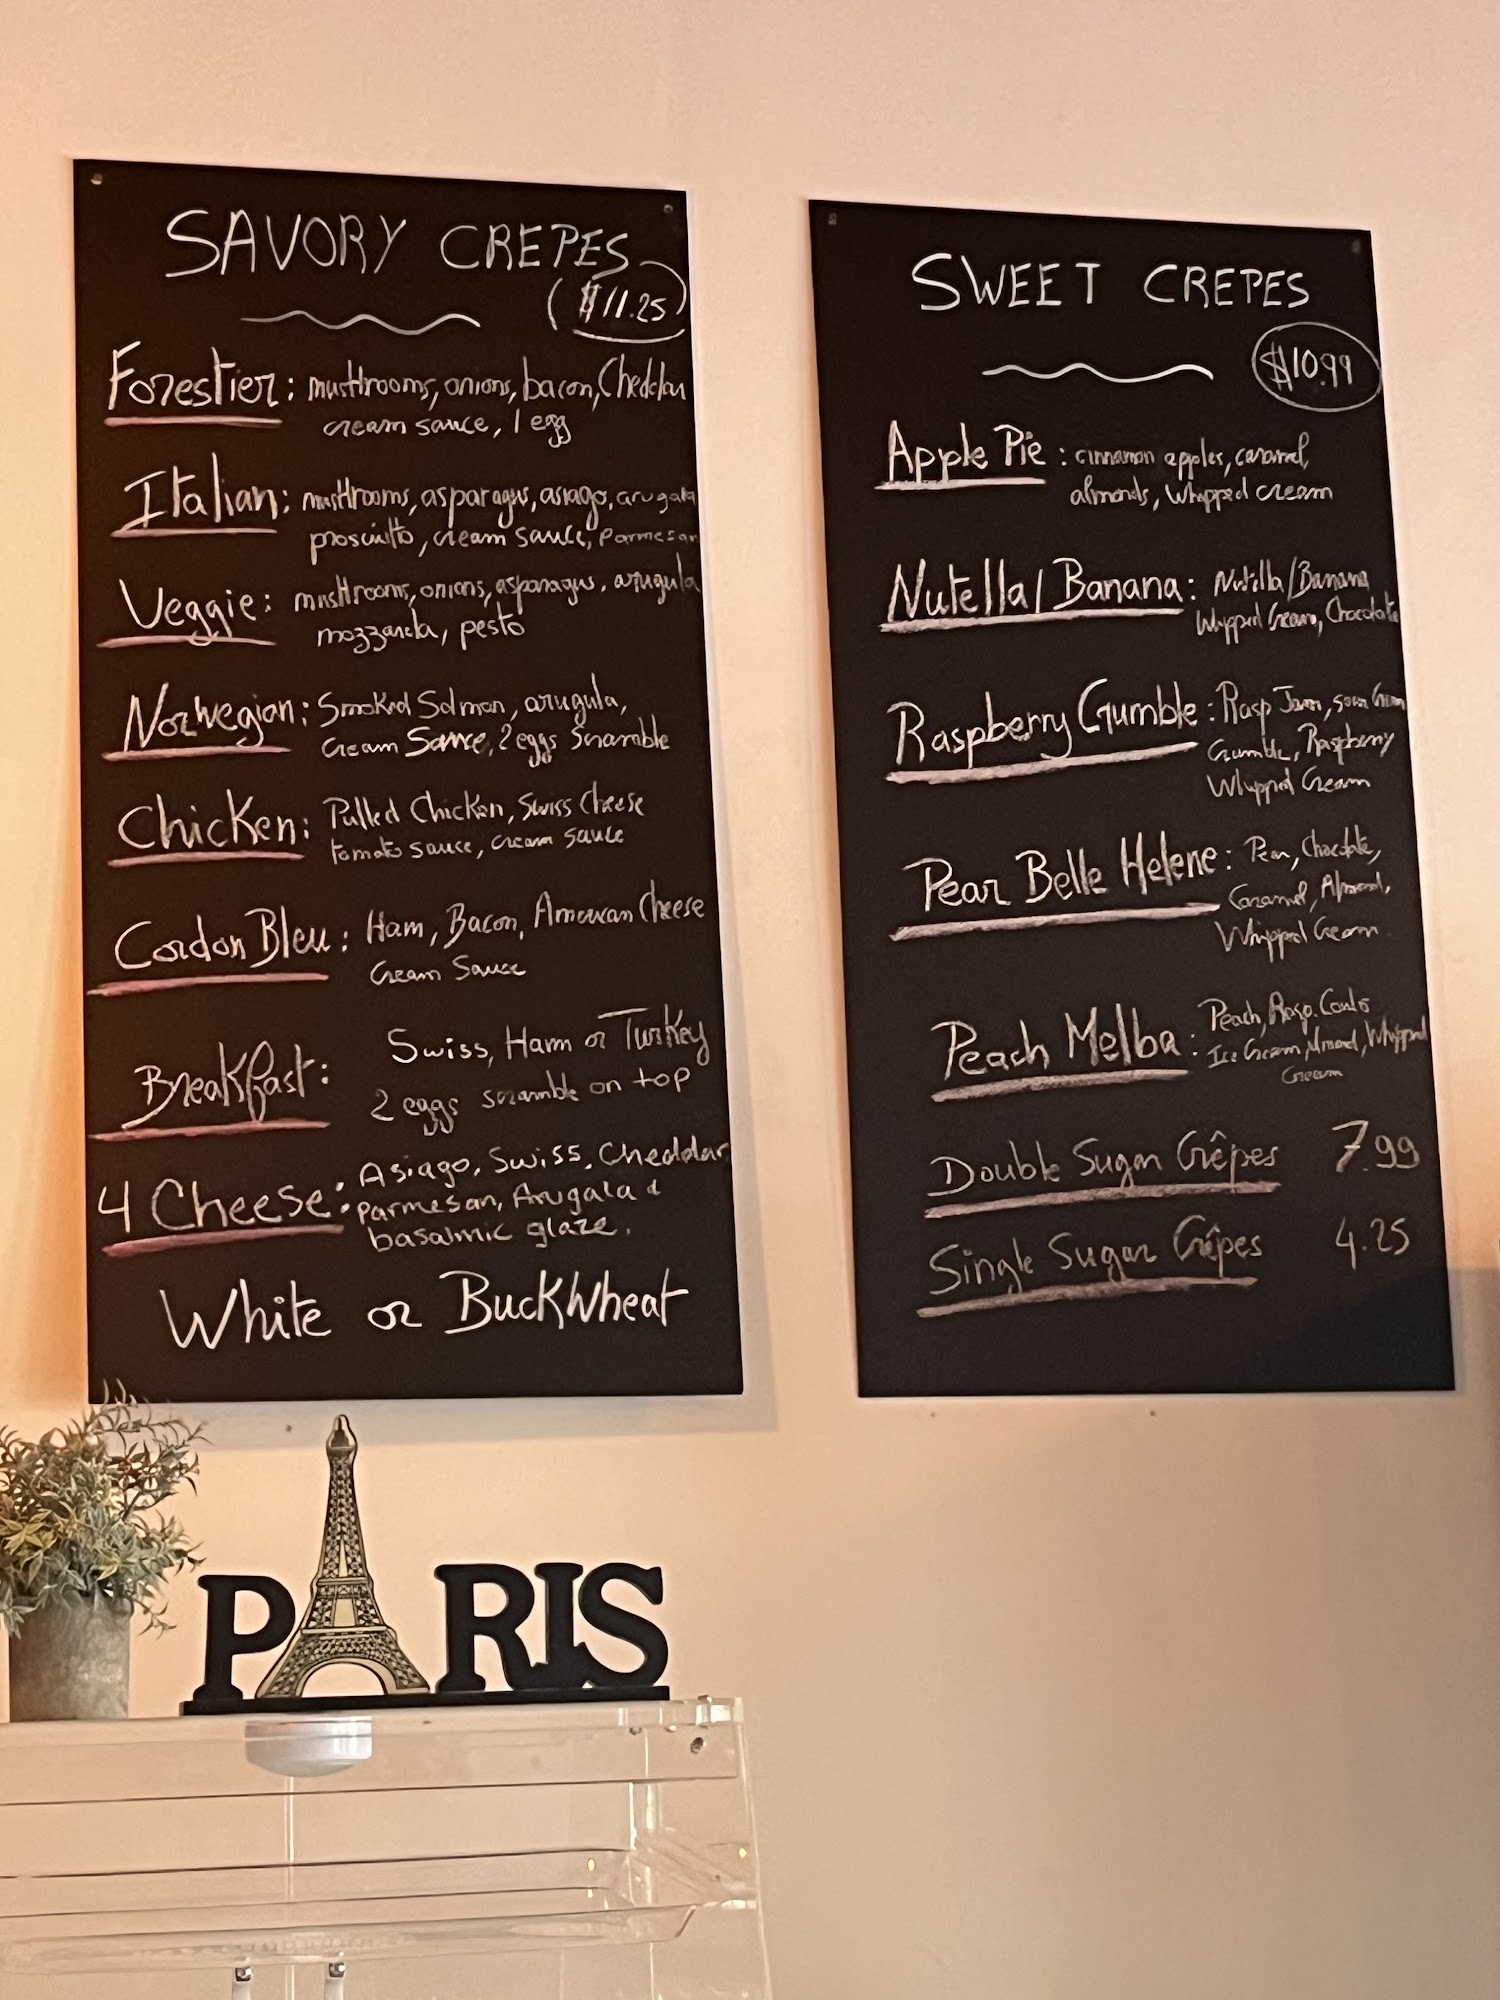 SAVORY CREPES
($11.25)
Forestier: mushrooms, onions, bacon, Cheddar
cream sauce, 1 egg
Italian: mushrooms, asparagus, asiago, arugala
prosciutto, cream sauce, Parmesan
Veggie: mushrooms, onions, asparagus, arugula
mozzarella, pesto
Norwegian: Smoked Salmon, arugula,
Cream Sauce, 2 eggs scramble
Chicken: Pulled Chicken, Swiss Cheese
tomato sauce, cream sauce
Cordon Bleu: Ham, Bacon, American Cheese
Cream Sauce
Breakfast: Swiss, Ham or Turkey
2 eggs scramble on top
4 Cheese: Asiago, Swiss, Cheddar,
parmesan, Arugala &
basalmic glaze.
White or Buckwheat
SWEET CREPES
$10.99
Apple Pie: cinnamon apples, caramel,
almonds, whipped cream
Nutella/Banana: Nutella/Banana
Whipped Cream, Chocolate
Raspberry Crumble: Rasp Jam, sour Cream
Crumble, Raspberry
Whipped Cream
Pear Belle Helene: Pear, Chocolate,
Caramel, Almond,
Whipped Cream
Peach Melba: Peach, Rasp. Coulis
Ice Cream, Almond, Whipped
Cream
Double Sugar Crêpes 7.99
Single Sugar Crêpes 4.25
PARIS